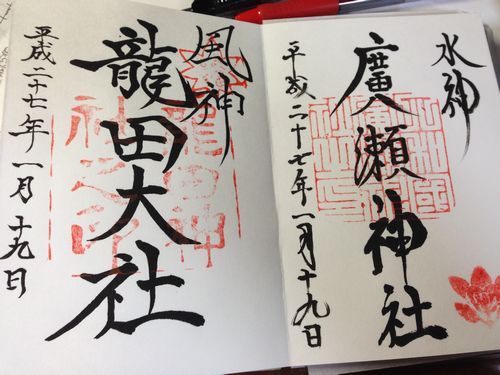 水神
廣瀬神社
平成二十七年一月十九日
風神
龍田大社
平成二十七年一月十九日